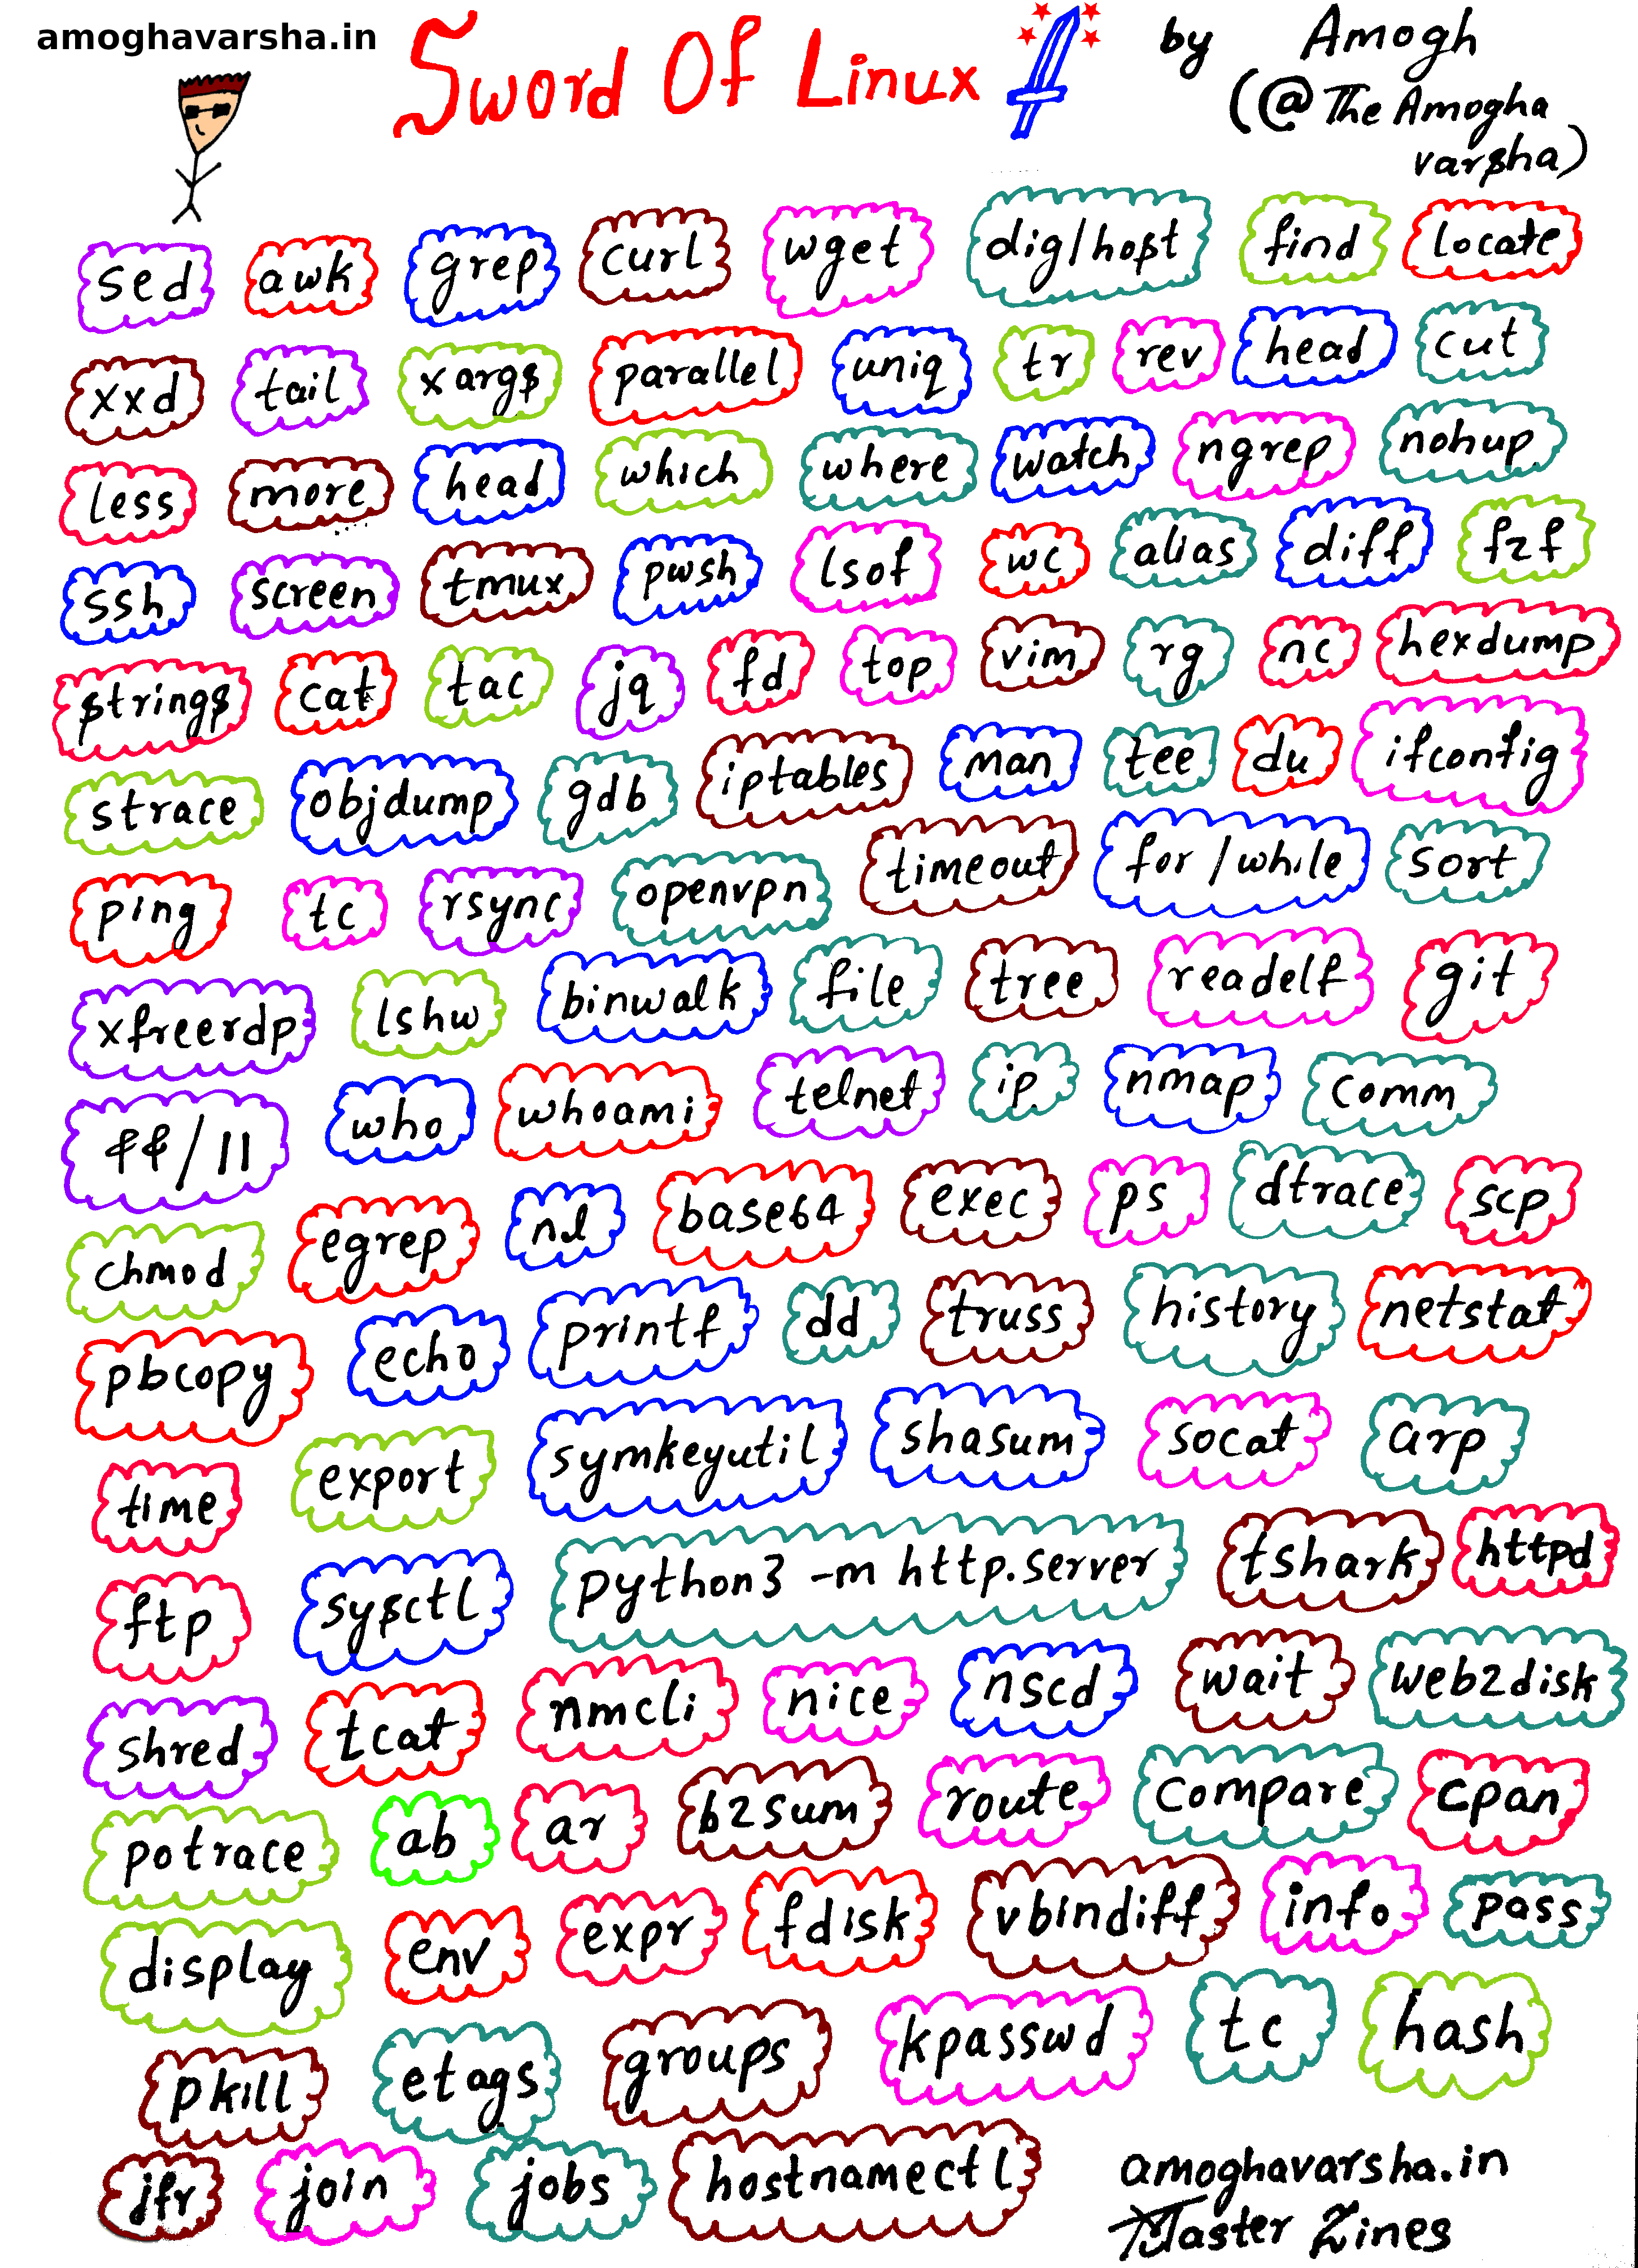 amoghavarsha.in
Sword Of Linux by Amogh
(@TheAmogha
varsha)
sed awk grep curl wget dig/host find locate
xxd tail xargs parallel uniq tr rev head cut
less more head which where watch ngrep nohup
ssh screen tmux pwsh lsof wc alias diff fzf
strings cat tac jq fd top vim rg nc hexdump
strace objdump gdb iptables man tee du ifconfig
ping tc rsync openvpn timeout for/while sort
xfreerdp lshw binwalk file tree readelf git
&&/|| who whoami telnet ip nmap comm
chmod egrep nl base64 exec ps dtrace scp
pbcopy echo printf dd truss history netstat
time export symkeyutil shasum socat arp
ftp sysctl python3 -m http.server tshark httpd
shred tcat nmcli nice nscd wait web2disk
potrace ab ar b2sum route compare cpan
display env expr fdisk vbindiff info pass
pkill etags groups kpasswd tc hash
jfr join jobs hostnamectl
amoghavarsha.in
Master Zines